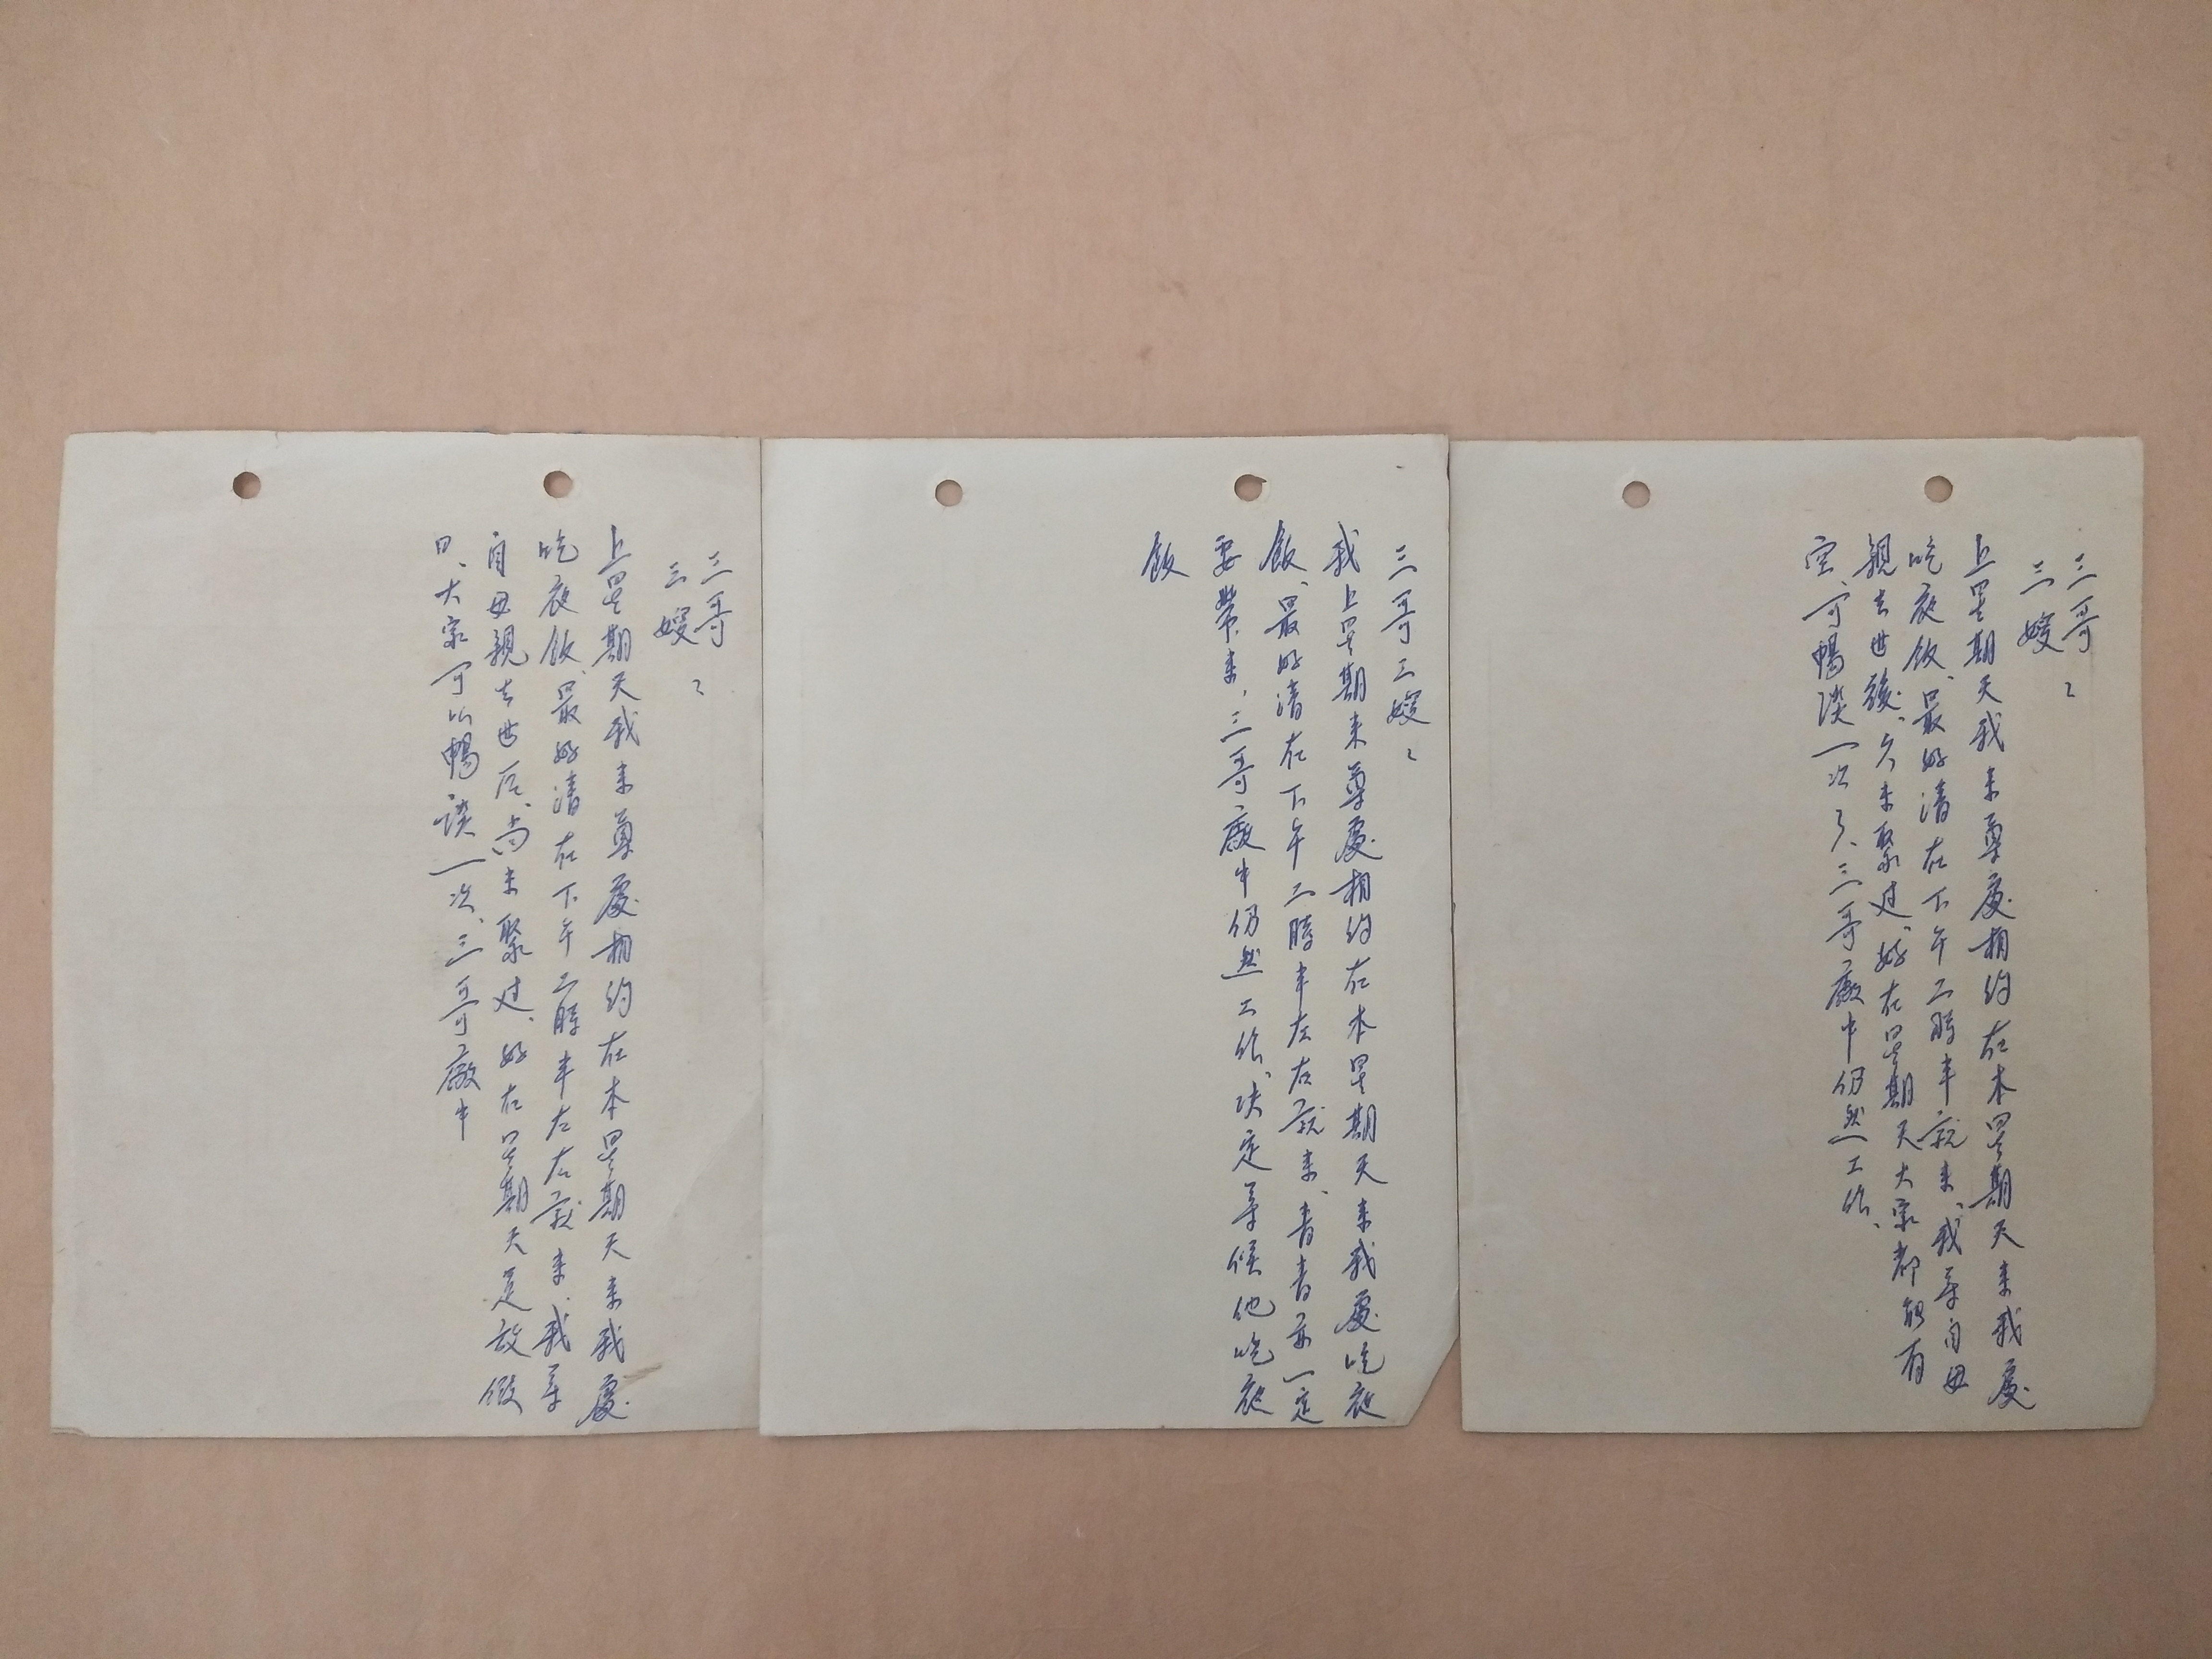 三哥
三嫂：
上星期天我来尊處相约在本星期天来我處
吃夜飯、最好請在下午二時半就来、我等自母
親去世後、久未聚过、好在星期天大家都能有
空、可暢談一次了、三哥廠中仍然工作、
三哥三嫂：
我上星期来尊處相约在本星期天来我處吃夜
飯、最好請在下午二時半左右就来、青青亦一定
要帶来、三哥廠中仍然工作、决定等候他吃夜
飯
三哥
三嫂：
上星期天我来尊處相约在本星期天来我處
吃夜飯、最好請在下午二時半左右就来、我等
自母親去世后、尚未聚过、好在星期天是放假
日、大家可以暢談一次、三哥廠中